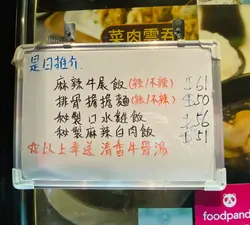 菜肉雲吞
是日推介
麻辣牛展飯(辣/不辣) $61
排骨擔擔麵(辣/不辣) $50
秘製口水雞飯 $56
秘製麻辣白肉飯 $51
以上幸送清香牛骨湯
foodpanda